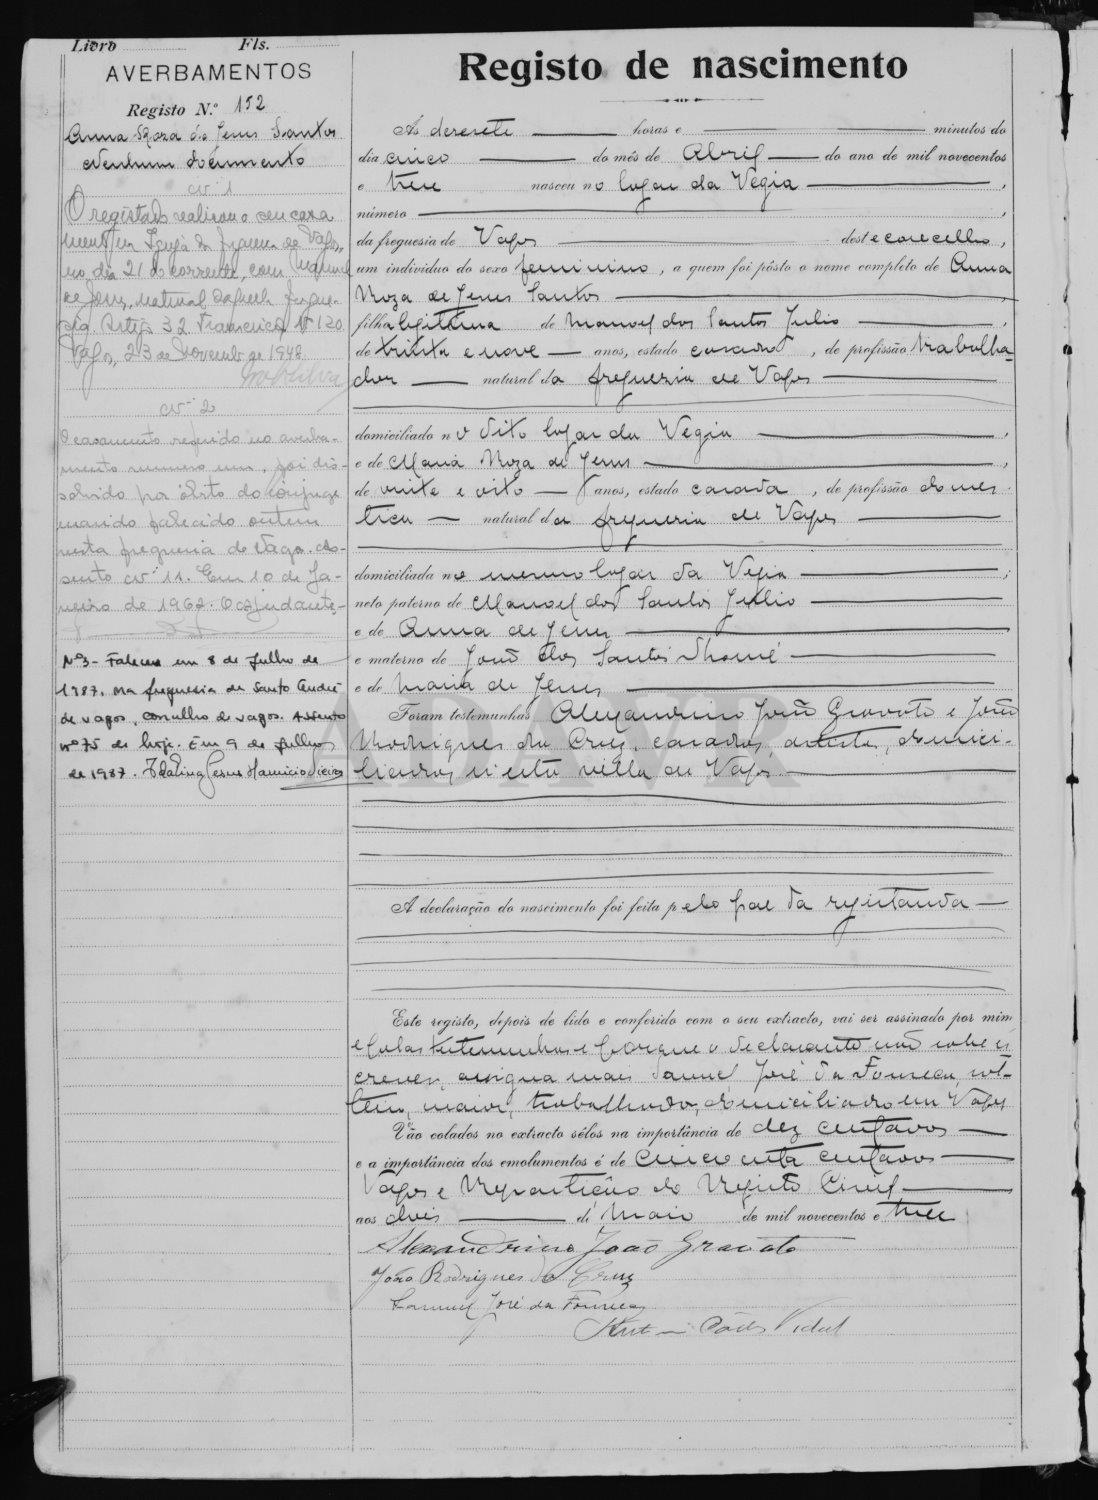 Livro Fls.
AVERBAMENTOS
Registo N.º 152
Anna Roza de Jesus Santos
Nenhum documento
Nº 1
O registado realizou o seu casa
mento na Igreja da freguesia de Vagos,
no dia 21 do corrente, com Manuel
de Jesus, natural daquela fregue-
sia. Artigo 32. Transcrição Nº 120.
Vagos, 23 de Novembro de 1948
Silva
Nº 2
O casamento referido no averba-
mento numero um, foi dis-
solvido por óbito do conjuge
marido falecido ontem
nesta freguesia de Vagos. As-
sento nº 11. Em 10 de Ja-
neiro de 1962. O Ajudante,
Nº3 - Faleceu em 8 de Julho de
1987, na freguesia de Santo André
de Vagos, concelho de Vagos. Assento
nº 75 de hoje. Em 9 de Julho
de 1987. Idalina Jesus Mauricio Vieira
Registo de nascimento
Ás dezesete horas e minutos do
dia cinco do mês de Abril do ano de mil novecentos
e treze nasceu no lugar da Vegia,
número,
da freguesia de Vagos deste concelho,
um individuo do sexo feminino, a quem foi pôsto o nome completo de Anna
Roza de Jesus Santos
filha legitima de Manoel dos Santos Julio,
de trinta e nove anos, estado casado, de profissão trabalha=
dor natural da freguezia de Vagos
domiciliado no dito lugar da Vegia,
e de Maria Roza de Jesus,
de vinte e oito anos, estado casada, de profissão domes-
tica natural da freguezia de Vagos
domiciliada no mesmo lugar da Vegia;
neto paterno de Manoel dos Santos Julio
e de Anna de Jesus
e materno de João dos Santos Thomé
e de Maria de Jesus
Foram testemunhas Alexandrino João Gravato e João
Rodrigues da Cruz, casados, artistas, domici-
liados n'esta villa de Vagos
A declaração do nascimento foi feita pelo pae da registanda
Este registo, depois de lido e conferido com o seu extracto, vai ser assinado por mim
e pelas testemunhas e porque o declarante não sabe es
crever, assigna mais Samuel José da Fonseca, sol-
teiro, maior, trabalhador, domiciliado em Vagos
Vão colados no extracto sêlos na importância de dez centavos
e a importância dos emolumentos é de cincoenta centavos
Vagos e Repartição do Registo Civil
aos dois de Maio de mil novecentos e treze
Alexandrino João Gravato
João Rodrigues da Cruz
Samuel José da Fonseca
Vidal
ADAVR